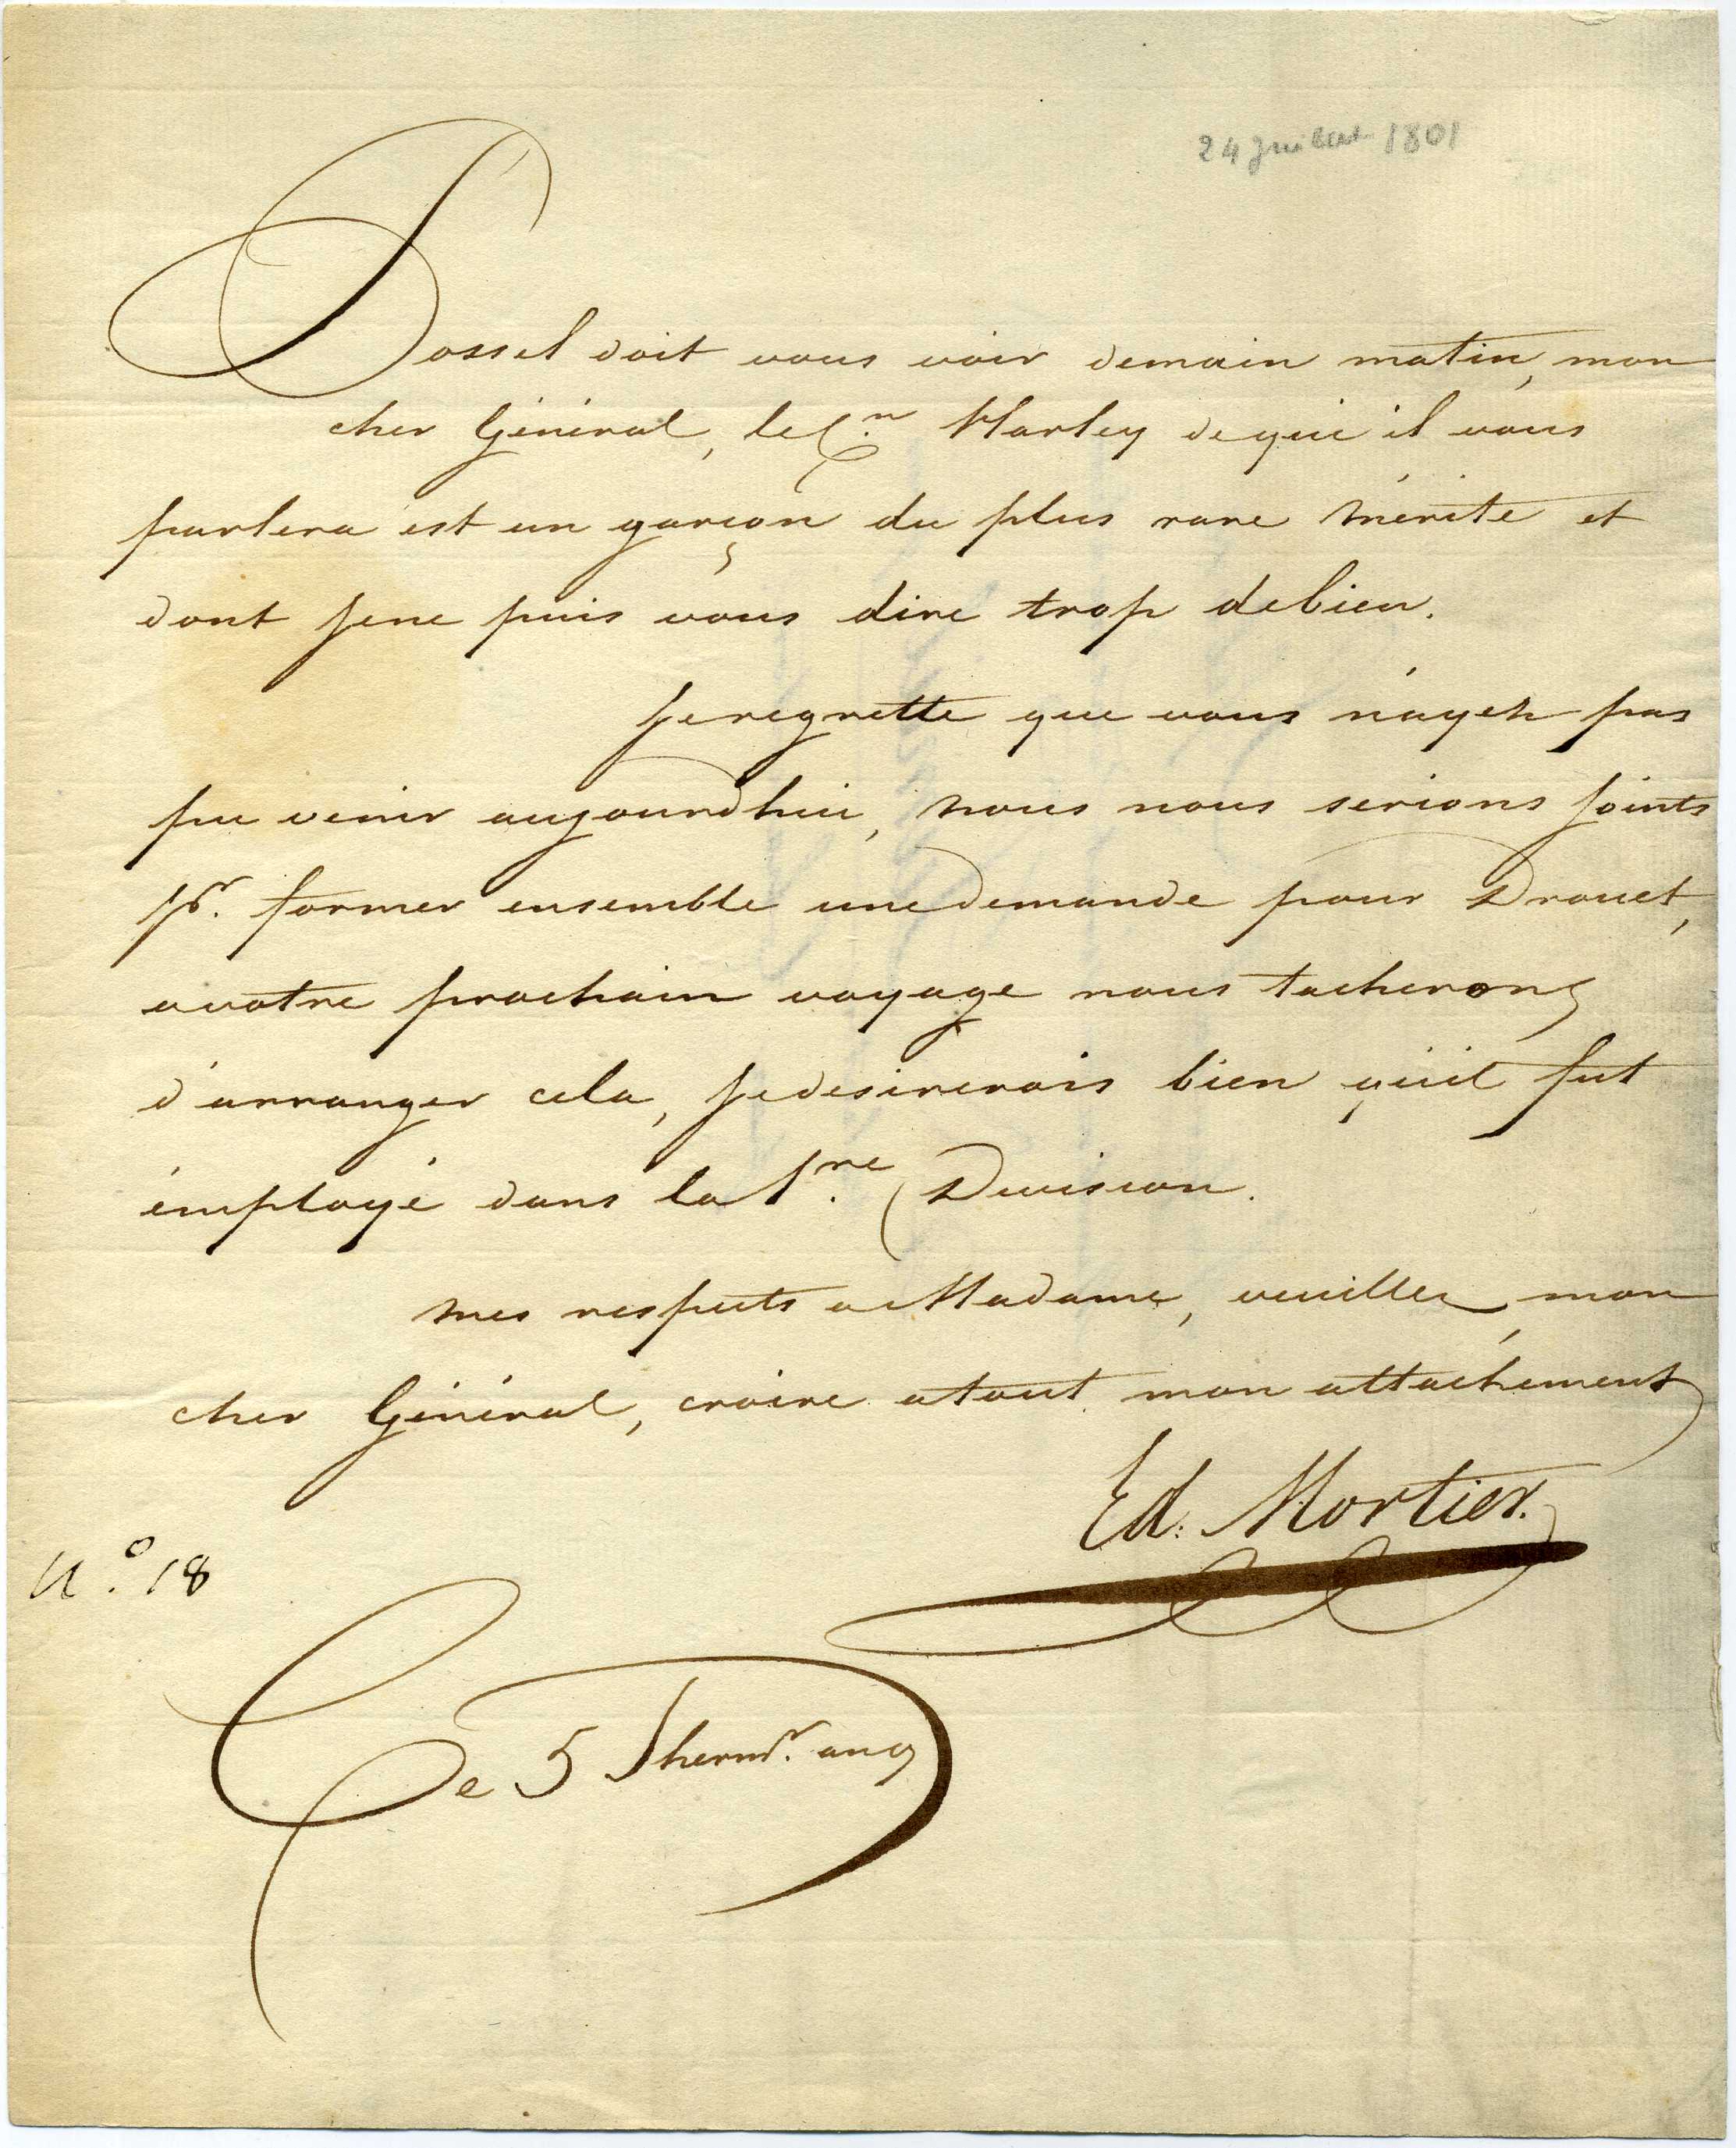 24 Juillet 1801
Dossel doit vous voir demain matin, mon
cher Général, le Cen Marley de qui il vous
parlera est un garçon du plus rare mérite et
dont je ne puis vous dire trop de bien.
Je regrette que vous n'ayez pas
pu venir aujourdhui, nous nous serions joints
pr. former ensemble une demande pour Drouet,
a votre prochain voyage nous tacherons
d'arranger cela, je desirerois bien qu'il fut
émployé dans la 1.re Division.
mes respects a Madame, veuillez, mon
cher Général, croire a tout mon attachement
Ed. Mortier.
N.o 18
Ce 5 Thermr. an 9